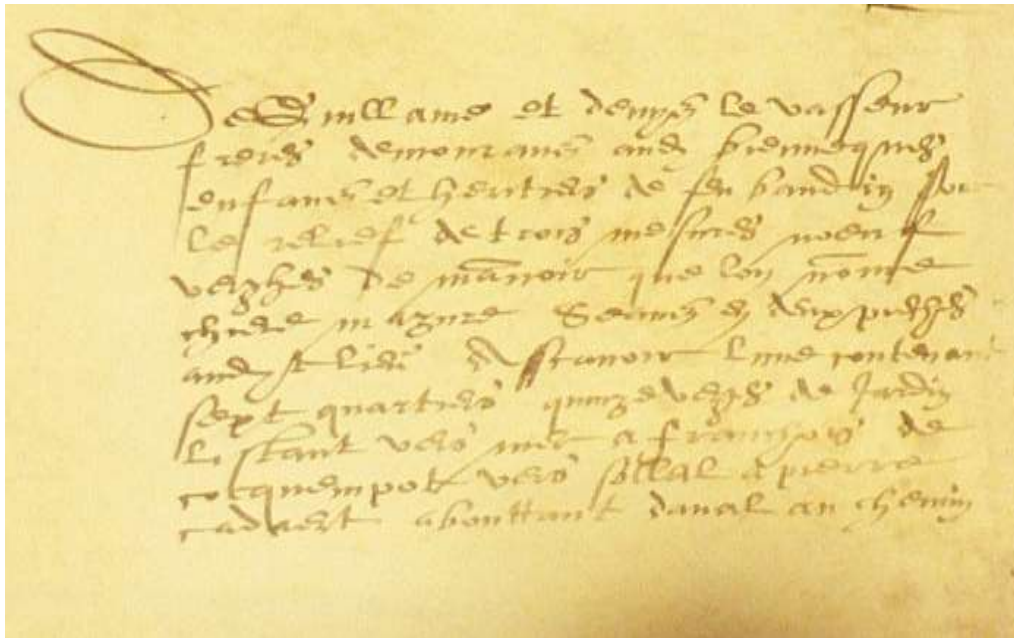 De Guillame et denys le vasseur
freres demourans aud biennecques
enfans et heritiers de feu baudin sur
le relief de trois mesures noeuf
verghes de mannoir que lon nome
chiere mazure Seans en deux pieches
aud lieu Asscavoir lune contenant
sept quartiers quinze verghes de Jardin
listant vers mer a franchois de
cocquempot vers sollal a pierre
cadart abouttant daval au chemin